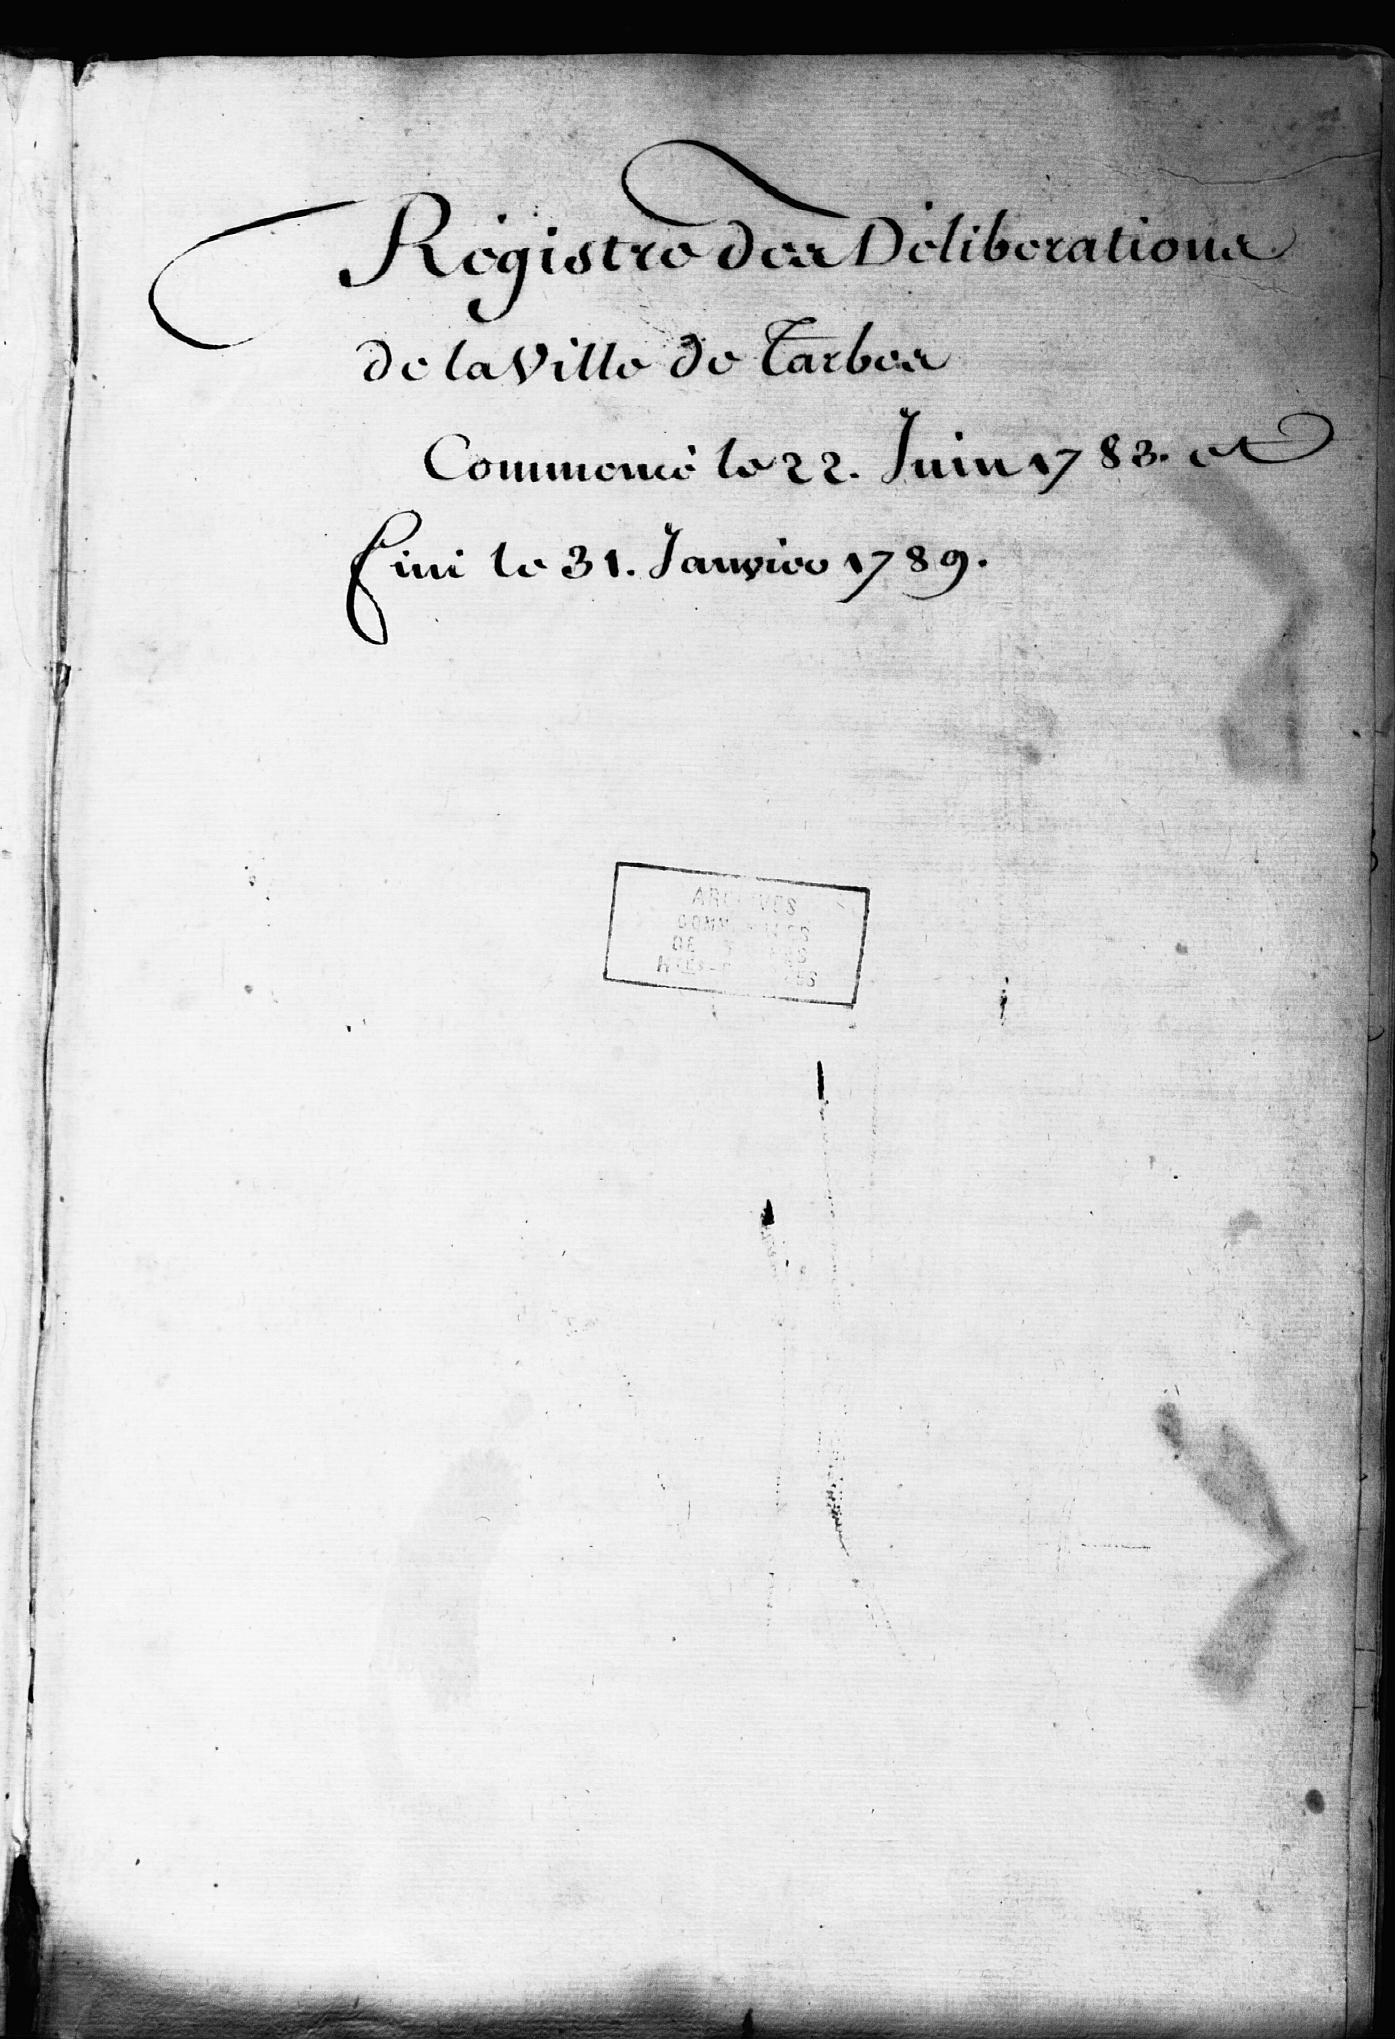 Régistre des Déliberations
de la Ville de Tarbes
Commencé le 22. Juin 1783. et
fini le 31. Janvier 1789.
ARCHIVES
COMMUNALES
DE TARBES